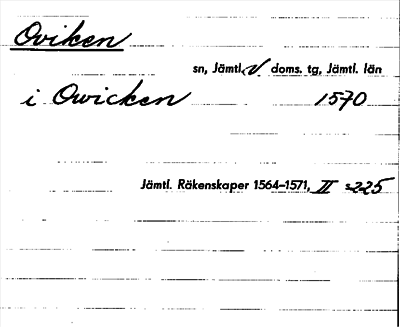 Oviken
sn, Jämtl. V doms. tg, Jämtl. län
i Owicken 1570
Jämtl. Räkenskaper 1564–1571, II s. 225